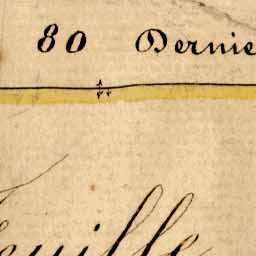 80 Dernie
euille